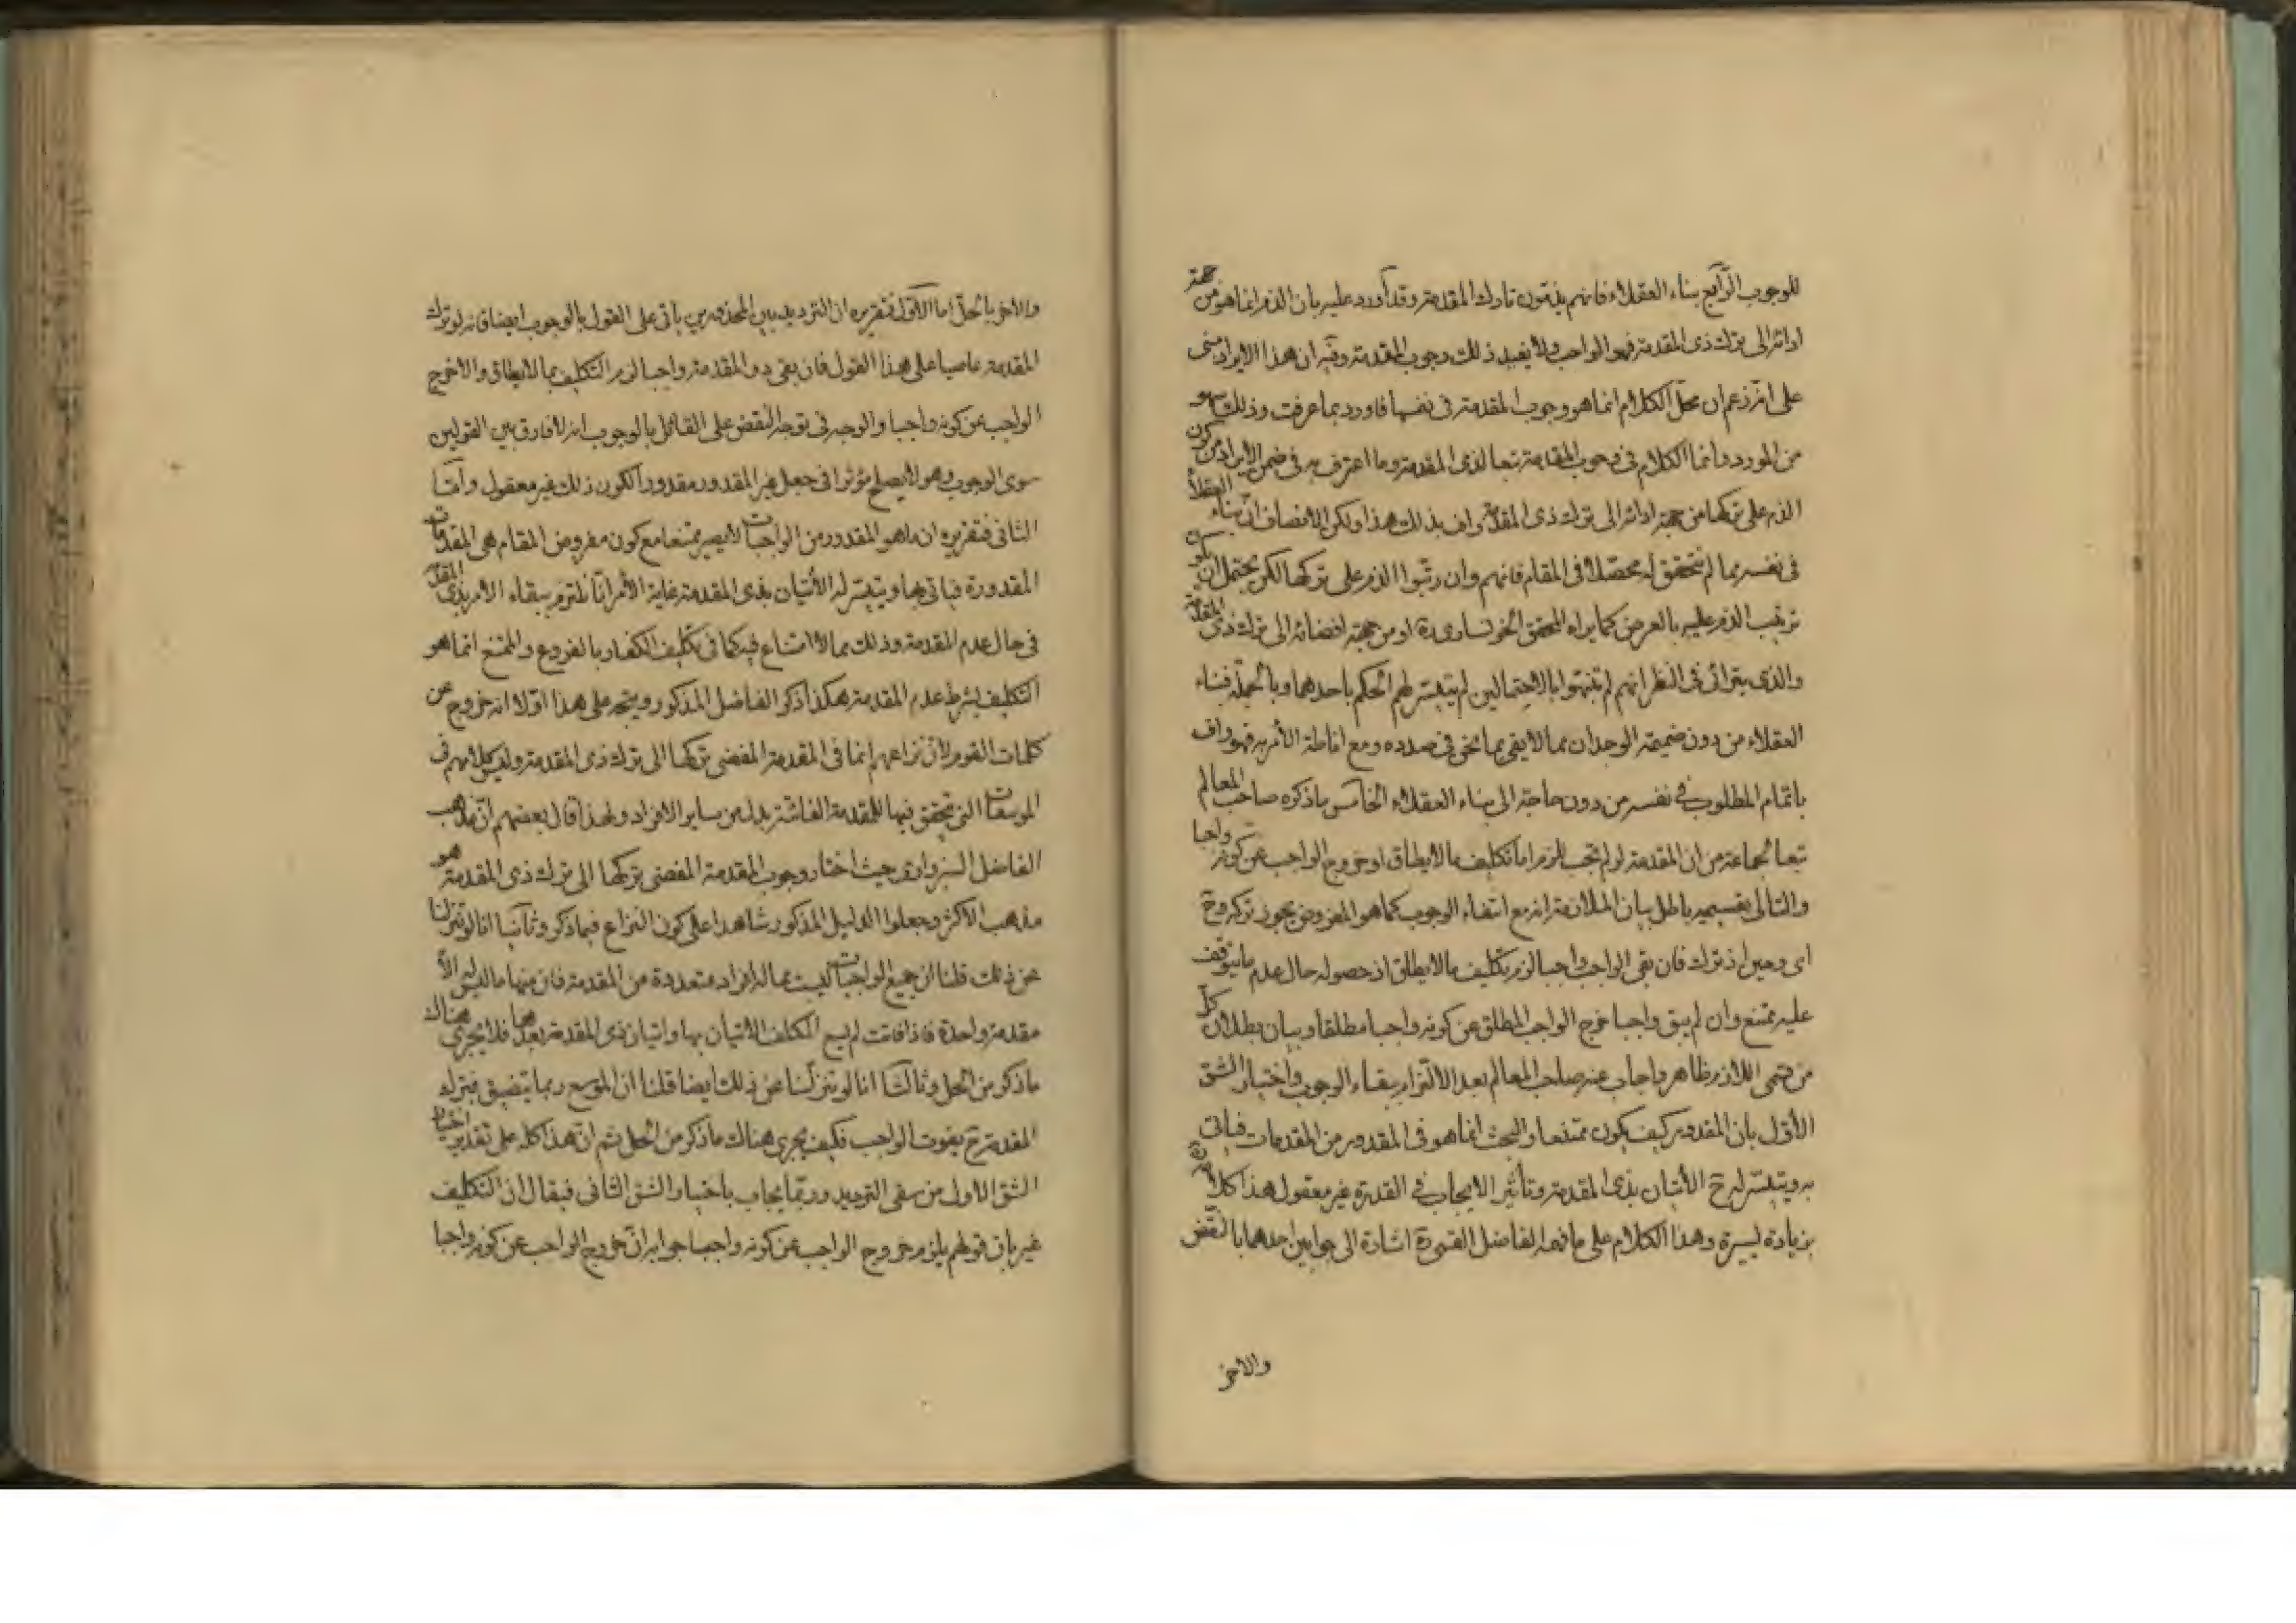 للوجوب الرّابع بناء العقلاء فانهم يذمّون تارك المقدمة وقد أورد عليه بان الذم انما هو من جهة
ادائه الى ترك ذى المقدمة فهو الواجب ولا يفيد ذلك وجوب المقدمة وفيه ان هذا الايراد مبنى
على انه زعم ان محل الكلام انما هو وجوب المقدمة فى نفسها فاورد بما عرفت وذلك سهو
من المورد وانما الكلام فى وجوب المقدمة تبعا لذى المقدمة وما اعترف به فى ضمن الايراد من كون
الذم على تركها من جهة ادائه الى ترك ذى المقدمة واف بذلك هذا ولكن الانصاف انّ بناء العقلاء
فى نفسه مما لم نتحقق له محصّلا فى المقام فانهم وان رتّبوا الذم على تركها لكن يحتمل ان يكون
ترتيب الذم عليه بالعرض كما يراه المحقق الخوانسارى او من جهة افضائه الى ترك ذى المقدمة
والذى يترائى فى النظر انهم لم يتنبهوا بالاحتمالين لم يتيسر لهم الحكم باحدهما وبالجملة فبناء
العقلاء من دون ضميمة الوجدان مما لا يفى بما نحن فى صدده ومع اناطة الأمر به فهو واف
باتمام المطلوب فى نفسه من دون حاجة الى بناء العقلاء الخامس ما ذكره صاحب المعالم
تبعا لجماعة من ان المقدمة لو لم تجب لزم اما تكليف ما لا يطاق او خروج الواجب عن كونه واجبا
والتالى بقسميه باطل بيان الملازمة انه مع انتفاء الوجوب كما هو المفروض يجوز تركه وح
اى وحين اذ ترك فان بقى الواجب واجبا لزم تكليف ما لا يطاق اذ حصوله حال عدم ما يتوقف
عليه ممتنع وان لم يبق واجبا خرج الواجب المطلق عن كونه واجبا مطلقا وبيان بطلان كلّ
من قسمى اللازم ظاهر واجاب عنه صاحب المعالم بعد الالتزام ببقاء الوجوب واختيار الشق
الأوّل بان المقدور كيف يكون ممتنعا والبحث انما هو فى المقدور من المقدمات فياتى
به ويتيسّر له ح الأتيان بذى المقدمة وتأثير الايجاب فى القدرة غير معقول هذا كلامه
بزيادة يسيرة وهذا الكلام على ما فهمه الفاضل اشارة الى جوابين احدهما بالنقض
والاخر
والاخر بالحلّ اما الأوّل فتقريره ان الترديد بين المحذورين ياتى على القول بالوجوب ايضا فانه لو ترك
المقدمة عاصيا على هذا القول فان بقى ذو المقدمة واجبا لزم التكليف بما لا يطاق والا خرج
الواجب عن كونه واجبا والوجه فى توجه النقض على القائل بالوجوب انه لا فارق بين القولين
سوى الوجوب وهو لا يصلح مؤثرا فى جعل غير المقدور مقدورا لكون ذلك غير معقول وأمّا
الثانى فتقريره ان ما هو المقدور من الواجبات لا يصير ممتنعا مع كون مفروض المقام هى المقدمات
المقدورة فياتى بها ويتيسّر له الأتيان بذى المقدمة غاية الأمر انّا نلتزم ببقاء الامر بذى المقدمة
فى حال عدم المقدمة وذلك مما لا امتناع فيه كما فى تكليف الكفار بالفروع والممتنع انما هو
التكليف بشرط عدم المقدمة هكذا ذكر الفاضل المذكور ويتجه على هذا اوّلا انه خروج عن
كلمات القوم لانّ نزاعهم انما فى المقدمة المفضى تركها الى ترك ذى المقدمة وليس كلامهم فى
الموسعات التى يتحقق فيها للمقدمة الفائتة بدل من ساير الافراد ولهذا قال بعضهم انّ مذهب
الفاضل السبزوارى حيث اختار وجوب المقدمة المفضى تركها الى ترك ذى المقدمة هو
مذهب الاكثر وجعلوا الدليل المذكور شاهدا على كون النزاع فيما ذكر وثانيا انا لو تنزلنا
عن ذلك قلنا ان جميع الواجبات ليست مما له افراد متعددة من المقدمة فان منها ما ليس له الّا
مقدمة واحدة فاذا فاتت لم يسع المكلف الأتيان بها واتيان ذى المقدمة بعدها فلا يجرى هناك
ما ذكر من الحل وثالثا انا لو تنزلنا عن ذلك ايضا قلنا ان الموسع ربما يتضيق فبترك
المقدمة ح يفوت الواجب فكيف يجرى هناك ما ذكر من الحل ثم انّ هذا كله على تقدير اختيار
الشق الاول من شقى الترديد وربّما يجاب باختيار الشق الثانى فيقال ان التكليف
غير باق قولهم يلزم خروج الواجب عن كونه واجبا جوابه انّ خروج الواجب عن كونه واجبا